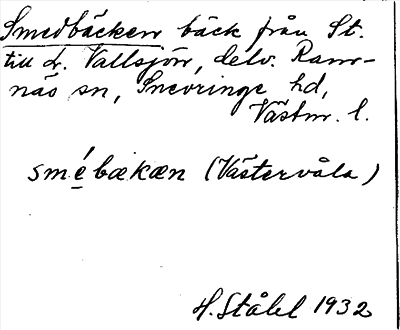 Smedbäcken bäck från St.
till L. Vallsjön, delv. Ram-
näs sn, Snevringe hd,
Västm. l.
smébækæn (Västervåla)
H. Ståhl 1932